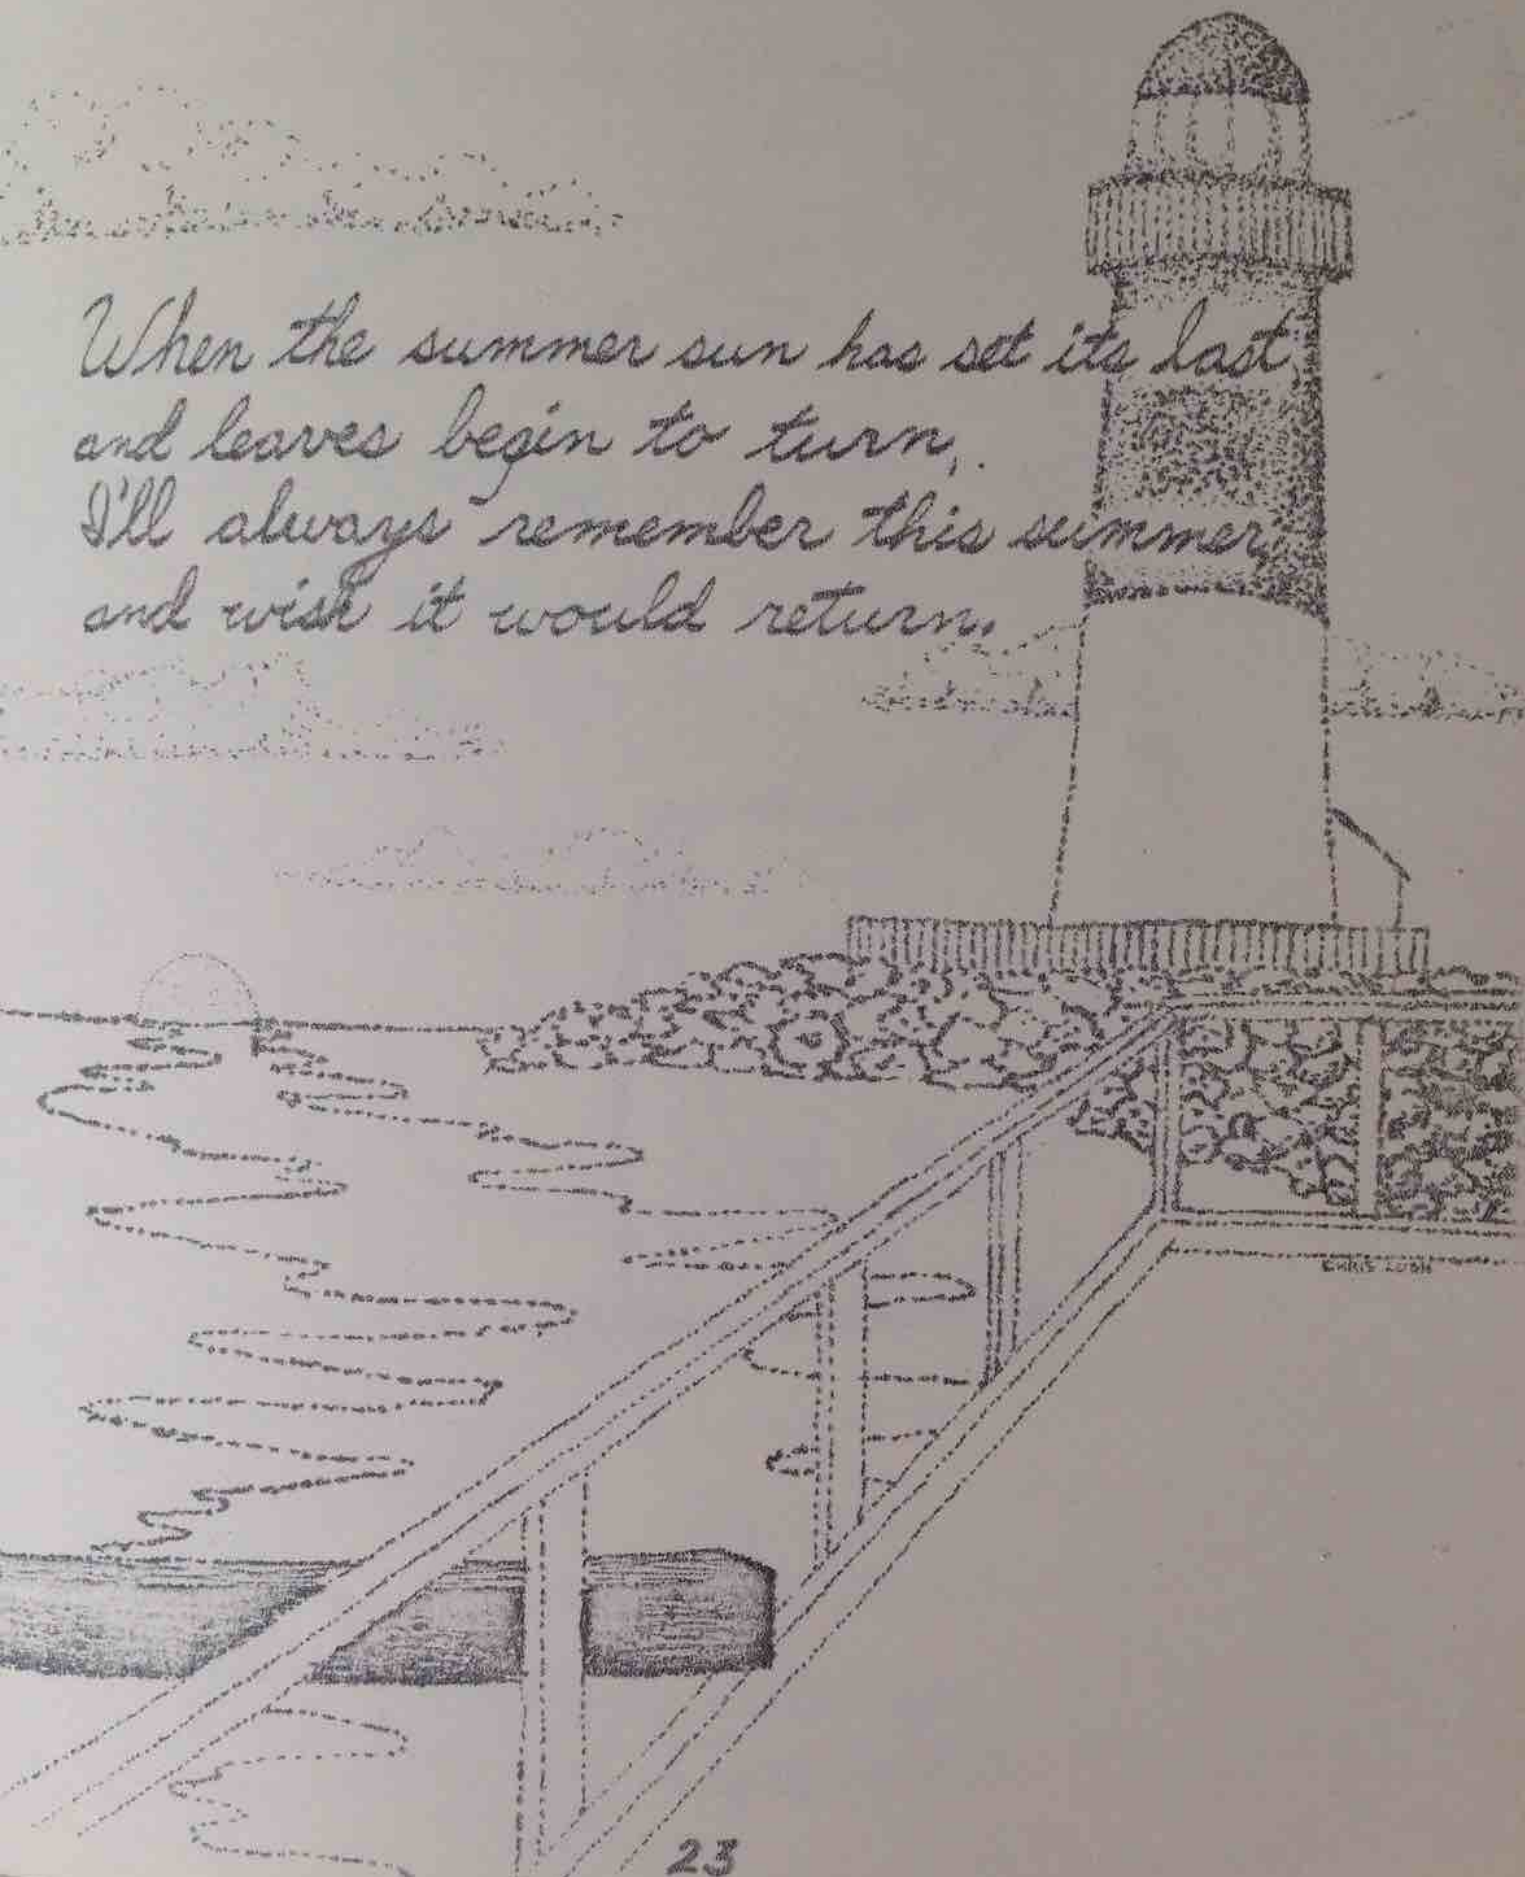 When the summer sun has set its last,
and leaves begin to turn,
I'll always remember this summer,
and wish it would return.
CHRIS LUSH
23